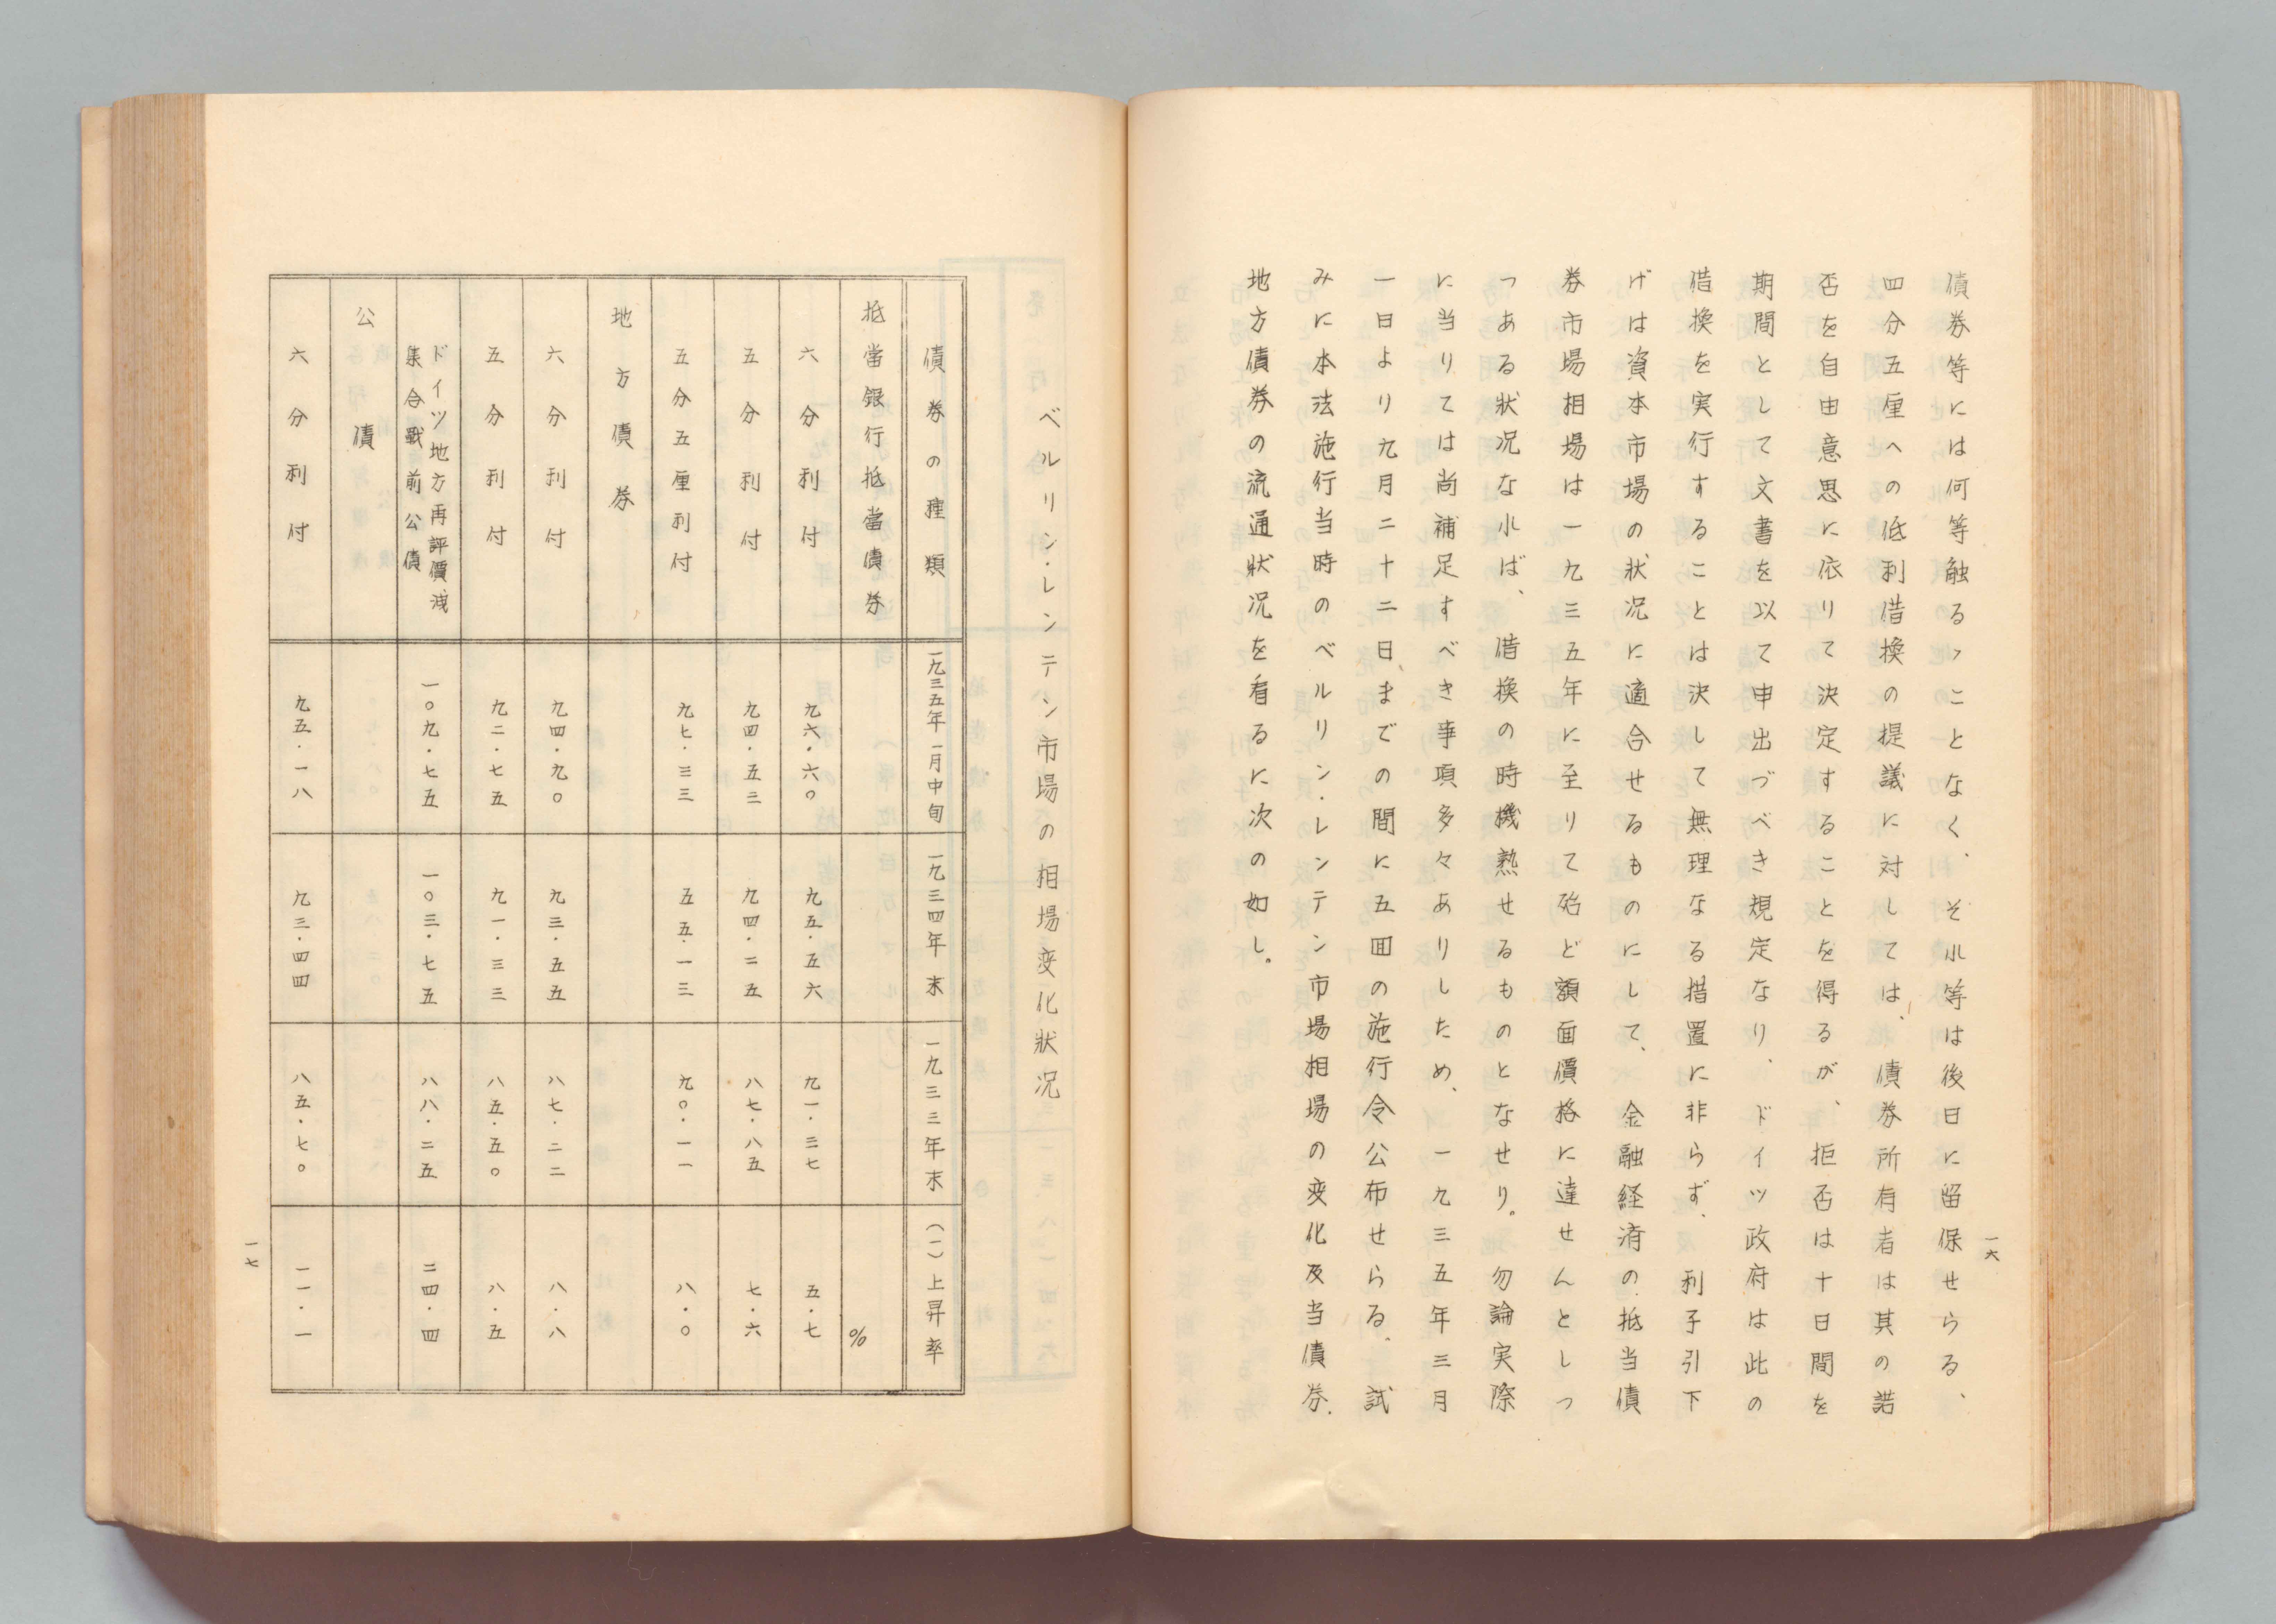 債券等には何等触るゝことなく、それ等は後日に留保せらる、
四分五厘への低利借換の提議に対しては、債券所有者は其の諾
否を自由意思に依りて決定することを得るが、拒否は十日間を
期間として文書を以て申出づべき規定なり、ドイツ政府は此の
借換を実行することは決して無理なる措置に非らず、利子引下
げは資本市場の状況に適合せるものにして、金融経済の抵当債
券市場相場は一九三五年に至りて殆ど額面價格に達せんとしつ
つある状況なれば、借換の時機熟せるものとなせり。勿論実際
に当りては尚補足すべき事項多々ありしため、一九三五年三月
一日より九月二十二日、までの間に五回の施行令公布せらる、試
みに本法施行当時のベルリン・レンテン市場相場の変化及当債券、
地方債券の流通狀況を看るに次の如し。
一六
ベルリン・レンテン市場の相場変化狀況
債券の種類 一九三五年一月中旬 一九三四年末 一九三三年末 (一)上昇率
抵當銀行抵當債券 %
六分利付 九六・六〇 九五・五六 九一・三七 五・七
五分利付 九四・五三 九四・二五 八七・八五 七・六
五分五厘利付 九七・三三 五五・一三 九〇・一一 八・〇
地方債券
六分利付 九四・九〇 九三・五五 八七・二二 八・八
五分利付 九二・七五 九一・三三 八五・五〇 八・五
ドイツ地方再評價浅
集合戰前公債 一〇九・七五 一〇三・七五 八八・二五 二四・四
公債
六分利付 九五・一八 九三・四四 八五・七〇 一一・一
一七